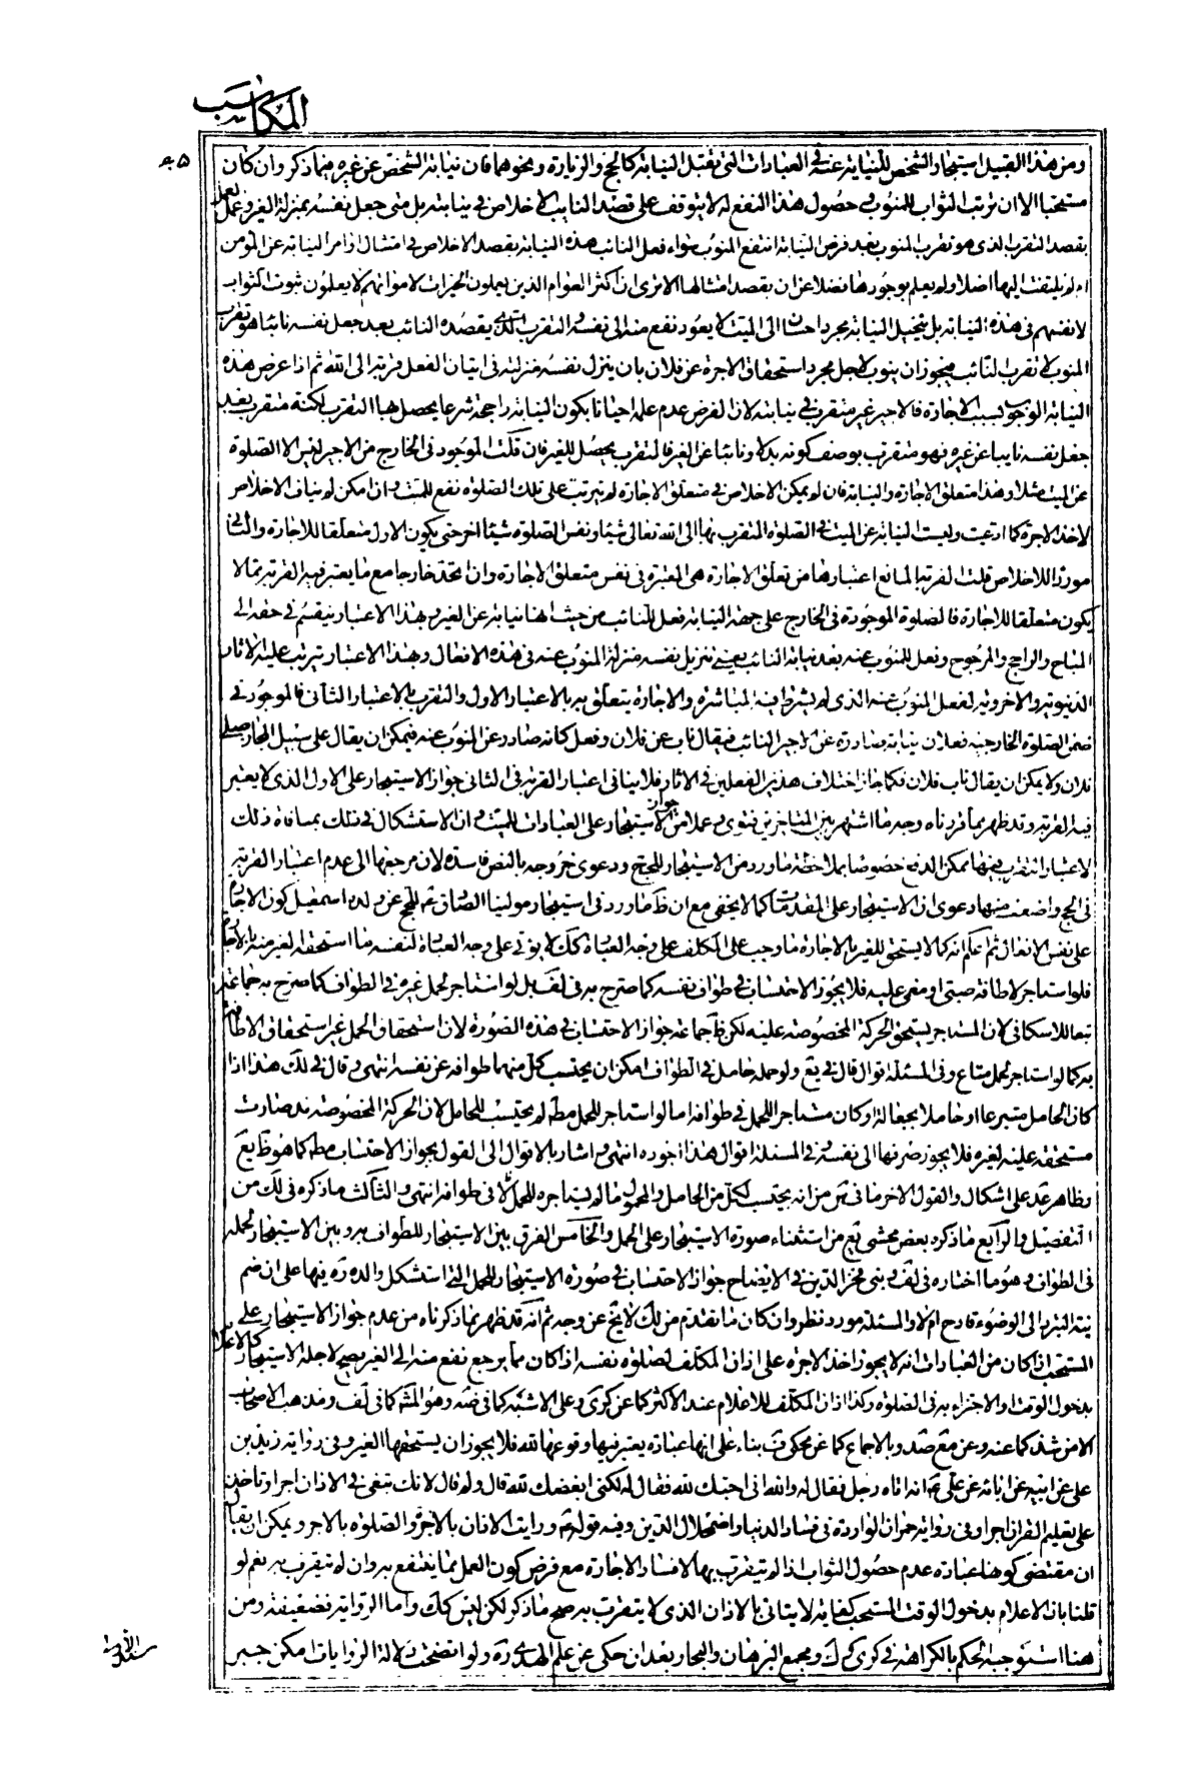 المكاسب
ومن هذا القبيل استيجار الشخص للنيابة عنه في العبادات التي تقبل النيابة كالحج والزيارة ونحوهما فان نيابة الشخص عن غيره فيما ذكر وان كان
مستحبا الا ان ترتب الثواب للمنوب في حصول هذا النفع له لا يتوقف على قصد النايب الاخلاص في نيابته بل متى جعل نفسه بمنزلة الغير وعمل العمل
بقصد التقرب الذى هو تقرب المنوب بعد فرض النيابة انتفع المنوب سواء فعل النائب هذه النيابة بقصد الاخلاص في امتثال اوامر النيابة عن المؤمن
ام لم يلتفت اليها اصلا ولم يعلم بوجودها فضلا عن ان يقصد امتثالها الا ترى ان اكثر العوام الذين يعملون الخيرات لامواتهم لا يعلمون ثبوت الثواب
لانفسهم في هذه النيابة بل يتخيل النيابة مجرد احسان الى الميت لا يعود نفع منه الى نفسه والتقرب الذى يقصده النائب بعد جعل نفسه نائبا هو تقرب
المنوب لا تقرب النائب فيجوز ان ينوب لاجل مجرد استحقاق الاجرة عن فلان بان ينزل نفسه منزلته في اتيان الفعل قربة الى الله ثم اذا عرض هذه
النيابة الوجوب بسبب الاجارة فالاجير غير متقرب في نيابته لان الفرض عدم علمه احيانا بكون النيابة راجحة شرعا يحصل بها التقرب لكنه متقرب بعد
جعل نفسه نايبا عن غيره فهو متقرب بوصف كونه بدلا ونائبا عن الغير فالتقرب يحصل للغير فان قلت الموجود في الخارج من الاجير ليس الا الصلوة
عن الميت مثلا وهذا متعلق الاجارة والنيابة فان لم يمكن الاخلاص في متعلق الاجارة لم يترتب على تلك الصلوة نفع للميت وان امكن لم يناف الاخلاص
لاخذ الاجرة كما ادعيت وليست النيابة عن الميت في الصلوة المتقرب بها الى الله تعالى شيئا ونفس الصلوة شيئا اخر حتى يكون الاول متعلقا للاجارة والثاني
موردا للاخلاص قلت القربة المانع اعتبارها من تعلق الاجارة هي المعتبرة في نفس متعلق الاجارة وان اتحد خارجا مع ما يعتبر فيه القربة مما لا
يكون متعلقا للاجارة فالصلوة الموجودة في الخارج على جهة النيابة فعل للنائب من حيث انها نيابة عن الغير وبهذا الاعتبار ينقسم في حقه الى
المباح والراجح والمرجوح وفعل للمنوب عنه بعد نيابة النائب يعني تنزيل نفسه منزلة المنوب عنه في هذه الافعال وبهذا الاعتبار يترتب عليه الاثار
الدنيوية والاخروية لفعل المنوب عنه الذى لم يشترط فيه المباشرة والاجارة يتعلق به بالاعتبار الاول والتقرب بالاعتبار الثاني فالموجود في
ضمن الصلوة الخارجية فعلان نيابة صادرة عن الاجير النائب فيقال ناب عن فلان وفعل كانه صادر عن المنوب عنه فيمكن ان يقال على سبيل المجاز صلى
فلان ولا يمكن ان يقال ناب فلان فكما جاز اختلاف هذين الفعلين في الاثار فلا ينافي اعتبار القربة في الثاني جواز الاستيجار على الاول الذى لا يعتبر
فيه القربة وقد ظهر مما قررناه وجه ما اشتهر بين المتاخرين فتوى وعملا من جواز الاستيجار على العبادات للميت وان الاستشكال في ذلك بمنافاة ذلك
لاعتبار التقرب فيها ممكن الدفع خصوصا بملاحظة ما ورد من الاستيجار للحج ودعوى خروجه بالنص فاسدة لان مرجعها الى عدم اعتبار القربة
في الحج واضعف منها دعوى ان الاستيجار على المقدمات كما لا يخفى مع ان ظ ما ورد في استيجار مولينا الصادق ع للحج عن ولده اسمعيل كون الاجارة
على نفس الافعال ثم اعلم انه كما لا يستحق للغير بالاجارة ما وجب على المكلف على وجه العبادة كك لا يؤتى على وجه العبادة لنفسه ما استحقه الغير منه بالاجارة
فلو استاجر لاطافة صبي او مغمى عليه فلا يجوز الاحتساب في طواف نفسه كما صرح به في لف بل لو استاجر لحمل غيره في الطواف كما صرح به جماعة
تبعا للاسكافي لان المستاجر يستحق الحركة المخصوصة عليه لكن ظ جماعة جواز الاحتساب في هذه الصورة لان استحقاق الحمل غير استحقاق الاطافة
به كما لو استاجر لحمل متاع وفي المسئلة اقوال قال في يع ولو حمله حامل في الطواف امكن ان يحتسب كل منهما طوافه عن نفسه انتهى وقال في لك هذا اذا
كان الحامل متبرعا او حاملا بجعالة او كان مستاجرا للحمل في طوافه اما لو استاجر للحمل مط لم يحتسب للحامل لان الحركة المخصوصة قد صارت
مستحقة عليه لغيره فلا يجوز صرفها الى نفسه وفي المسئلة اقوال هذا اجوده انتهى واشار بالاقوال الى القول بجواز الاحتساب مط كما هو ظ يع
وظاهر عد على اشكال والقول الاخر ما في س من انه يحتسب لكل من الحامل والمحمول ما لم يستاجره للحمل لا في طوافه انتهى والثالث ما ذكره في لك من
التفصيل والرابع ما ذكره بعض محشي يع من استثناء صورة الاستيجار على الحمل والخامس الفرق بين الاستيجار للطواف به وبين الاستيجار لحمله
في الطواف وهو ما اختاره في لف وبنى فخر الدين في الايضاح جواز الاحتساب في صورة الاستيجار للحمل التي استشكل والده ره فيها على ان ضم
نية التبرد الى الوضوء قادح ام لا والمسئلة مورد نظر وان كان ما تقدم من لك لا يخ عن وجه ثم انه قد ظهر مما ذكرناه من عدم جواز الاستيجار على
المستحب اذا كان من العبادات انه لا يجوز اخذ الاجرة على اذان المكلف لصلوة نفسه اذا كان مما يرجع نفع منه الى الغير يصح لاجله الاستيجار كالاعلام
بدخول الوقت والاجتزاء به في الصلوة وكذا اذان المكلف للاعلام عند الاكثر كما عن كرى وعلى الاشبه كما في ضه وهو المشه كما في لف ومذهب الاصحاب
الا من شذ كما عنه وعن مع صد وبالاجماع كما عن محكي ف بناء على انها عبادة يعتبر فيها وقوعها لله فلا يجوز ان يستحقها الغير وفي رواية زيد بن
على عن ابيه عن ابائه عن على ع انه اتاه رجل فقال له والله اني احبك لله فقال له لكني ابغضك لله قال ولم قال لانك تبغى في الاذان اجرا وتاخذ
على تعليم القران اجرا وفي رواية حمران الواردة في فساد الدنيا واضمحلال الدين وفيه قوله ع ورايت الاذان بالاجر والصلوة بالاجر ويمكن ان يقال
ان مقتضى كونها عبادة عدم حصول الثواب اذا لم يتقرب بها لا فساد الاجارة مع فرض كون العمل مما ينتفع به وان لم يتقرب به نعم لو
قلنا بان الاعلام بدخول الوقت المستحب كفاية لا يتاتى بالاذان الذى لا يتقرب به صح ما ذكر لكن ليس كك واما الرواية فضعيفة ومن
هنا استوجه الحكم بالكراهة في كرى وك ومجمع البرهان والبحار بعد ان حكى عن علم الهدى ره ولو اتضحت دلالة الروايات امكن جبر